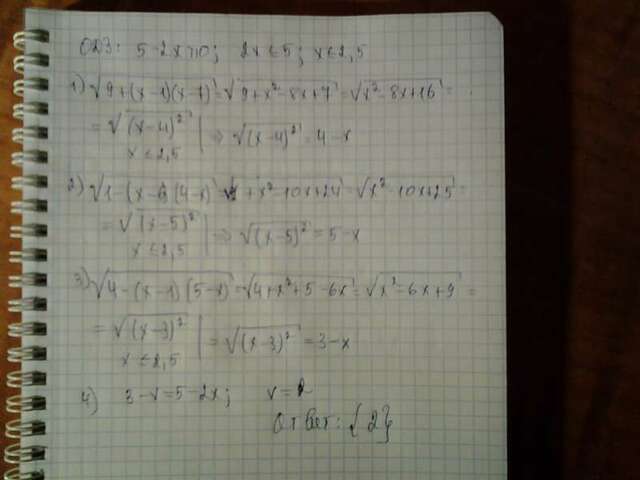 ОДЗ: 5-2x≥0; 2x≤5; x≤2,5
1) √9+(x-1)(x-7) = √9+x²-8x+7 = √x²-8x+16 =
= √(x-4)² | ⇒ √(x-4)² = 4-x
x≤2,5
2) √1-(x-6)(4-x) = √1+x²-10x+24 = √x²-10x+25 =
= √(x-5)² | ⇒ √(x-5)² = 5-x
x≤2,5
3) √4-(x-1)(5-x) = √4+x²+5-6x = √x²-6x+9 =
= √(x-3)² | = √(x-3)² = 3-x
x≤2,5
4) 3-x=5-2x; x=2
Ответ: {2}